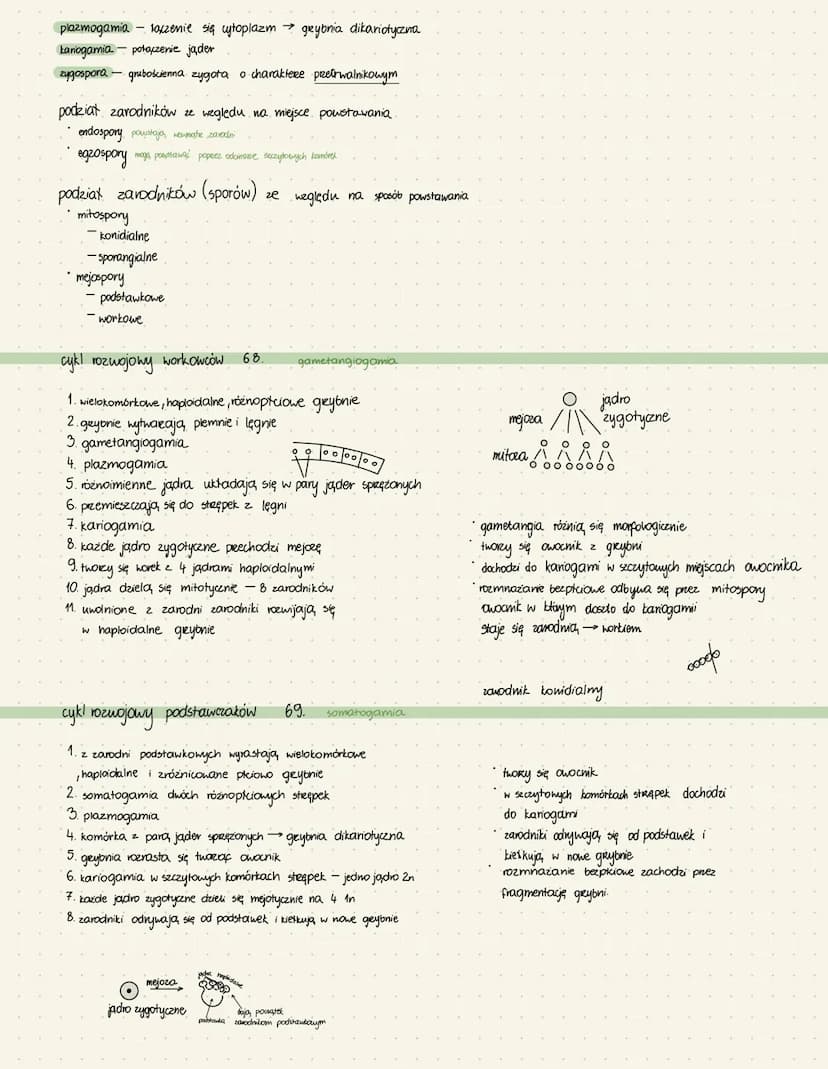 plazmogamia – łączenie się cytoplazm → grzybnia dikariotyczna
kariogamia – połączenie jąder
zygospora – grubościenna zygota o charakterze przetrwalnikowym
podział zarodników ze względu na miejsce powstawania
· endospory powstają wewnątrz zarodni
· egzospory mogą powstawać poprzez odcinanie szczytowych komórek
podział zarodników (sporów) ze względu na sposób powstawania
· mitospory
– konidialne
– sporangialne
· mejospory
– podstawkowe
– workowe
cykl rozwojowy workowców 68. gametangiogamia
1. wielokomórkowe, haploidalne, różnopłciowe grzybnie
2. grzybnie wytwarzają plemnie i lęgnie
3. gametangiogamia
4. plazmogamia
5. różnoimienne jądra układają się w pary jąder sprzężonych
6. przemieszczają się do strzępek z lęgni
7. kariogamia
8. każde jądro zygotyczne przechodzi mejozę
9. tworzy się worek z 4 jądrami haploidalnymi
10. jądra dzielą się mitotycznie – 8 zarodników
11. uwolnione z zarodni zarodniki rozwijają się
w haploidalne grzybnie
jądro
mejoza zygotyczne
mitoza
· gametangia różnią się morfologicznie
· tworzy się owocnik z grzybni
· dochodzi do kariogami w szczytowych miejscach owocnika
· rozmnażanie bezpłciowe odbywa się przez mitospory
owocnik w którym doszło do kariogamii
staje się zarodnią → workiem
zarodnik konidialny
cykl rozwojowy podstawczaków 69. somatogamia
1. z zarodni podstawkowych wyrastają wielokomórkowe
, haploidalne i zróżnicowane płciowo grzybnie
2. somatogamia dwóch różnopłciowych strzępek
3. plazmogamia
4. komórka z parą jąder sprzężonych → grzybnia dikariotyczna
5. grzybnia rozrasta się tworząc owocnik
6. kariogamia w szczytowych komórkach strzępek – jedno jądro 2n
7. każde jądro zygotyczne dzieli się mejotycznie na 4 1n
8. zarodniki odrywają się od podstawek i kiełkują w nowe grzybnie
· tworzy się owocnik
· w szczytowych komórkach strzępek dochodzi
do kariogami
· zarodniki odrywają się od podstawek i
kiełkują w nowe grzybnie
· rozmnażanie bezpłciowe zachodzi przez
fragmentację grzybni.
mejoza
jądro zygotyczne
jądra haploidalne
podstawka
dają początek
zarodnikom podstawkowym